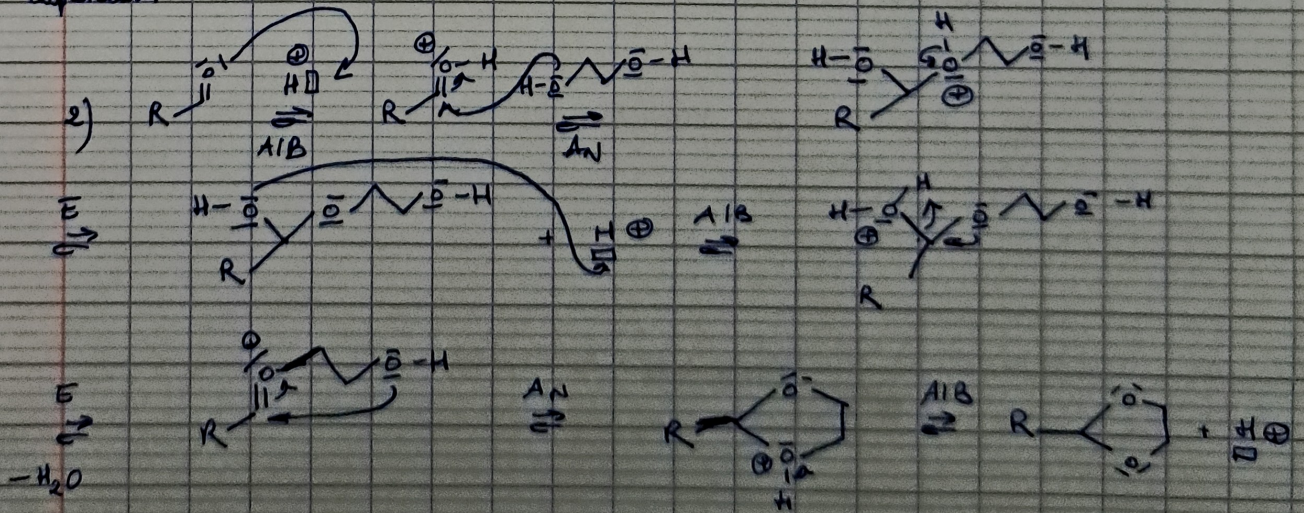 2)
R O H⊕ ⇌ A/B R O-H ⊕ H-O O-H ⇌ AN H-O H O ⊕ O-H R
E ⇌ H-O O O-H R + H ⊕ A/B ⇌ H-O H ⊕ O O-H R
E ⇌ -H2O ⊕ O O-H R AN ⇌ R O ⊕ O H A/B ⇌ R O O + H ⊕